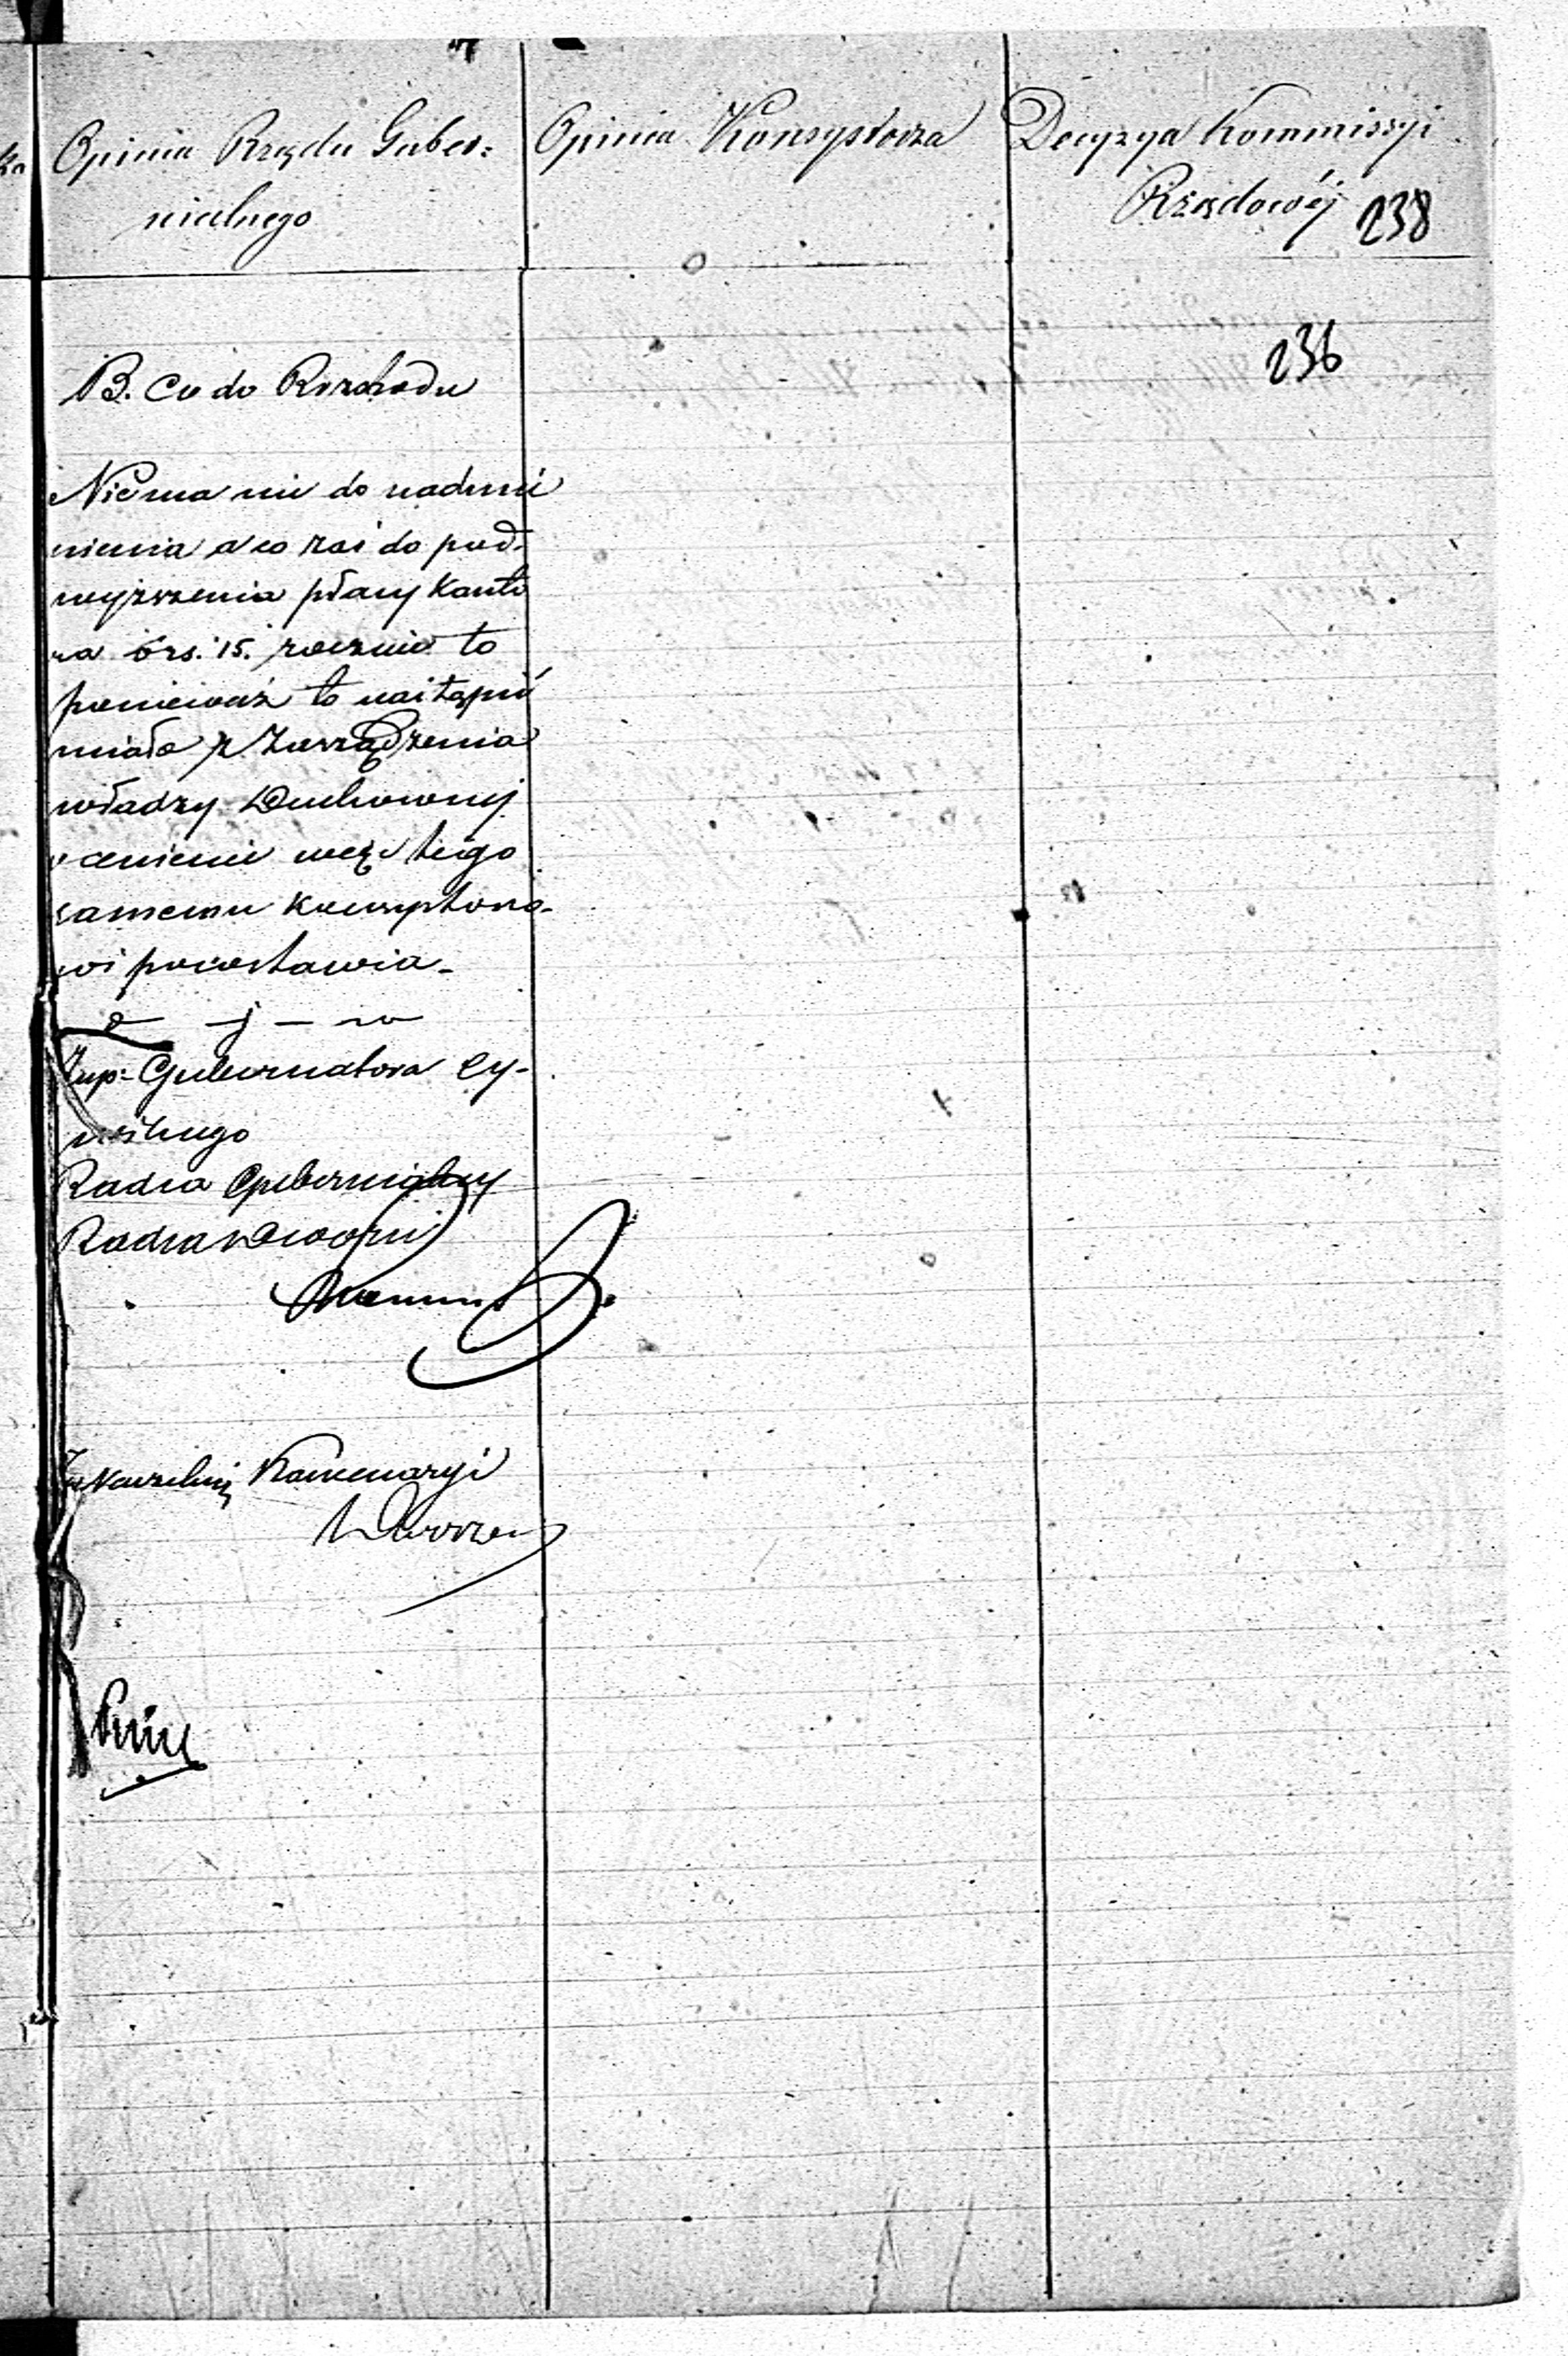 Opinia Rządu Guber=
nialnego
Opinia Konsystorza
Decyzya Kommissyi
Rządowéj
238
236
B. Co do Rozchodu
Niema nic do nadmie
nienia a co zaś do pod=
wyższenia płacy Kanto
ra o rs. 15. rocznie to
ponieważ to nastąpić
miało z Zarządzenia
władzy Duchownej
ocenienie więc tego
samemu Konsystorzo-
wi pozostawia_
Zup: Gubernatora Cy-
wilnego
Radca Gubernialny
Radca Dworu
Naczelnik Kancellaryi